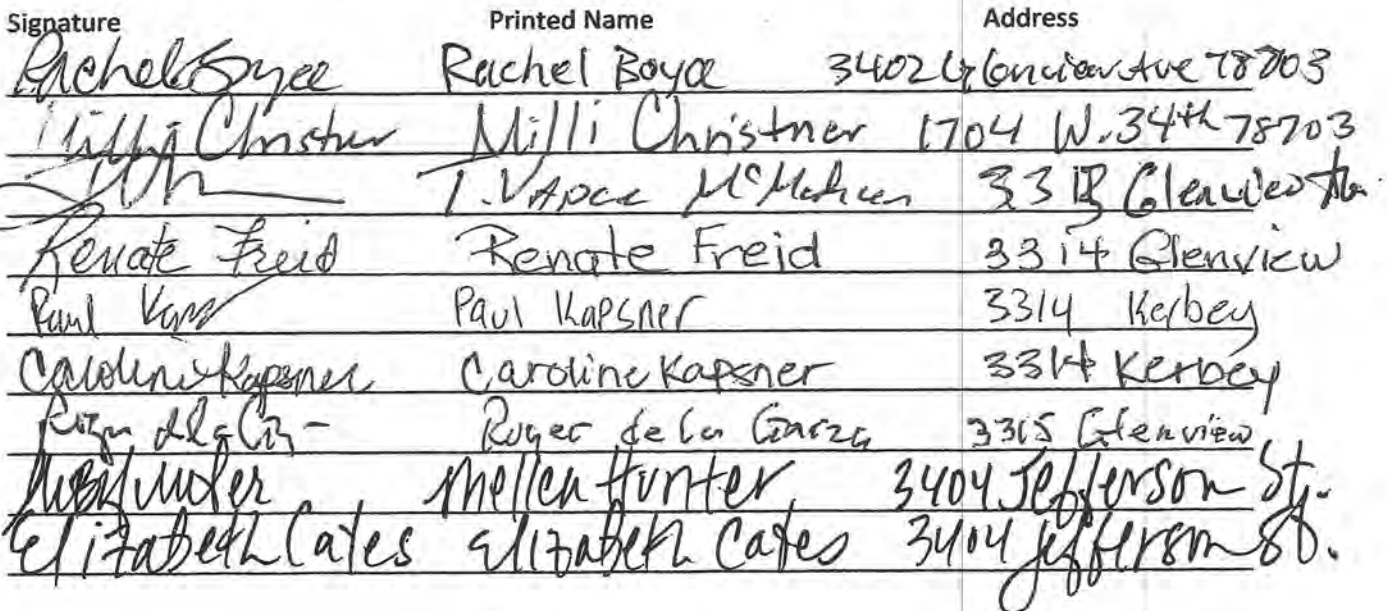 Signature Printed Name Address
Rachel Boyce Rachel Boyce 3402 Glenview Ave 78703
Milli Christner Milli Christner 1704 W. 34th 78703
T. Vance McMahan 3313 Glenview Ave.
Renate Freid Renate Freid 3314 Glenview
Paul Kaps Paul Kapsner 3314 Kerbey
Caroline Kapsner Caroline Kapsner 3314 Kerbey
Roger de la Garza 3315 Glenview
Mellen Hunter 3404 Jefferson St.
Elizabeth Cates Elizabeth Cates 3404 Jefferson St.